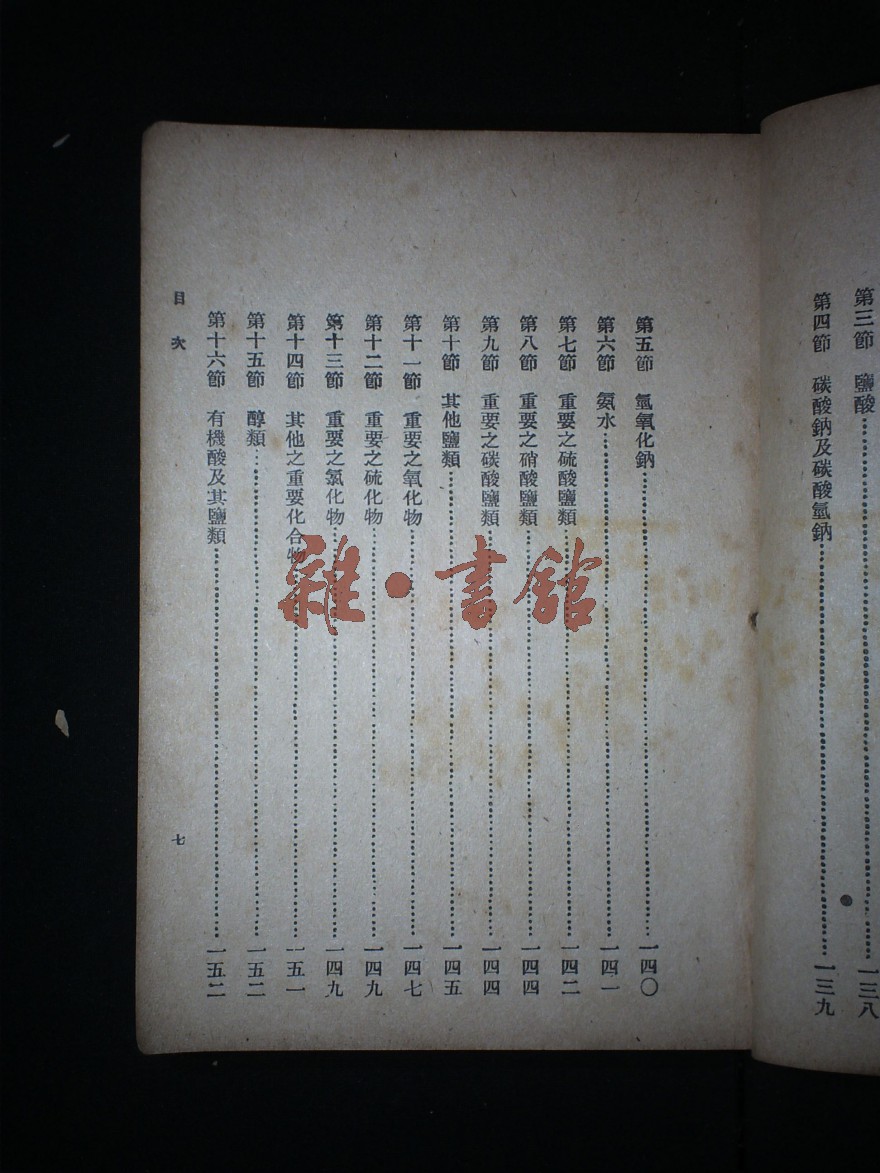 第三節　鹽酸……一三八
第四節　碳酸鈉及碳酸氫鈉……一三九
第五節　氫氧化鈉……一四〇
第六節　氨水……一四一
第七節　重要之硫酸鹽類……一四二
第八節　重要之硝酸鹽類……一四四
第九節　重要之碳酸鹽類……一四四
第十節　其他鹽類……一四五
第十一節　重要之氧化物……一四七
第十二節　重要之硫化物……一四九
第十三節　重要之氯化物……一四九
第十四節　其他之重要化合物……一五一
第十五節　醇類……一五二
第十六節　有機酸及其鹽類……一五二
目次
七
雜·書館